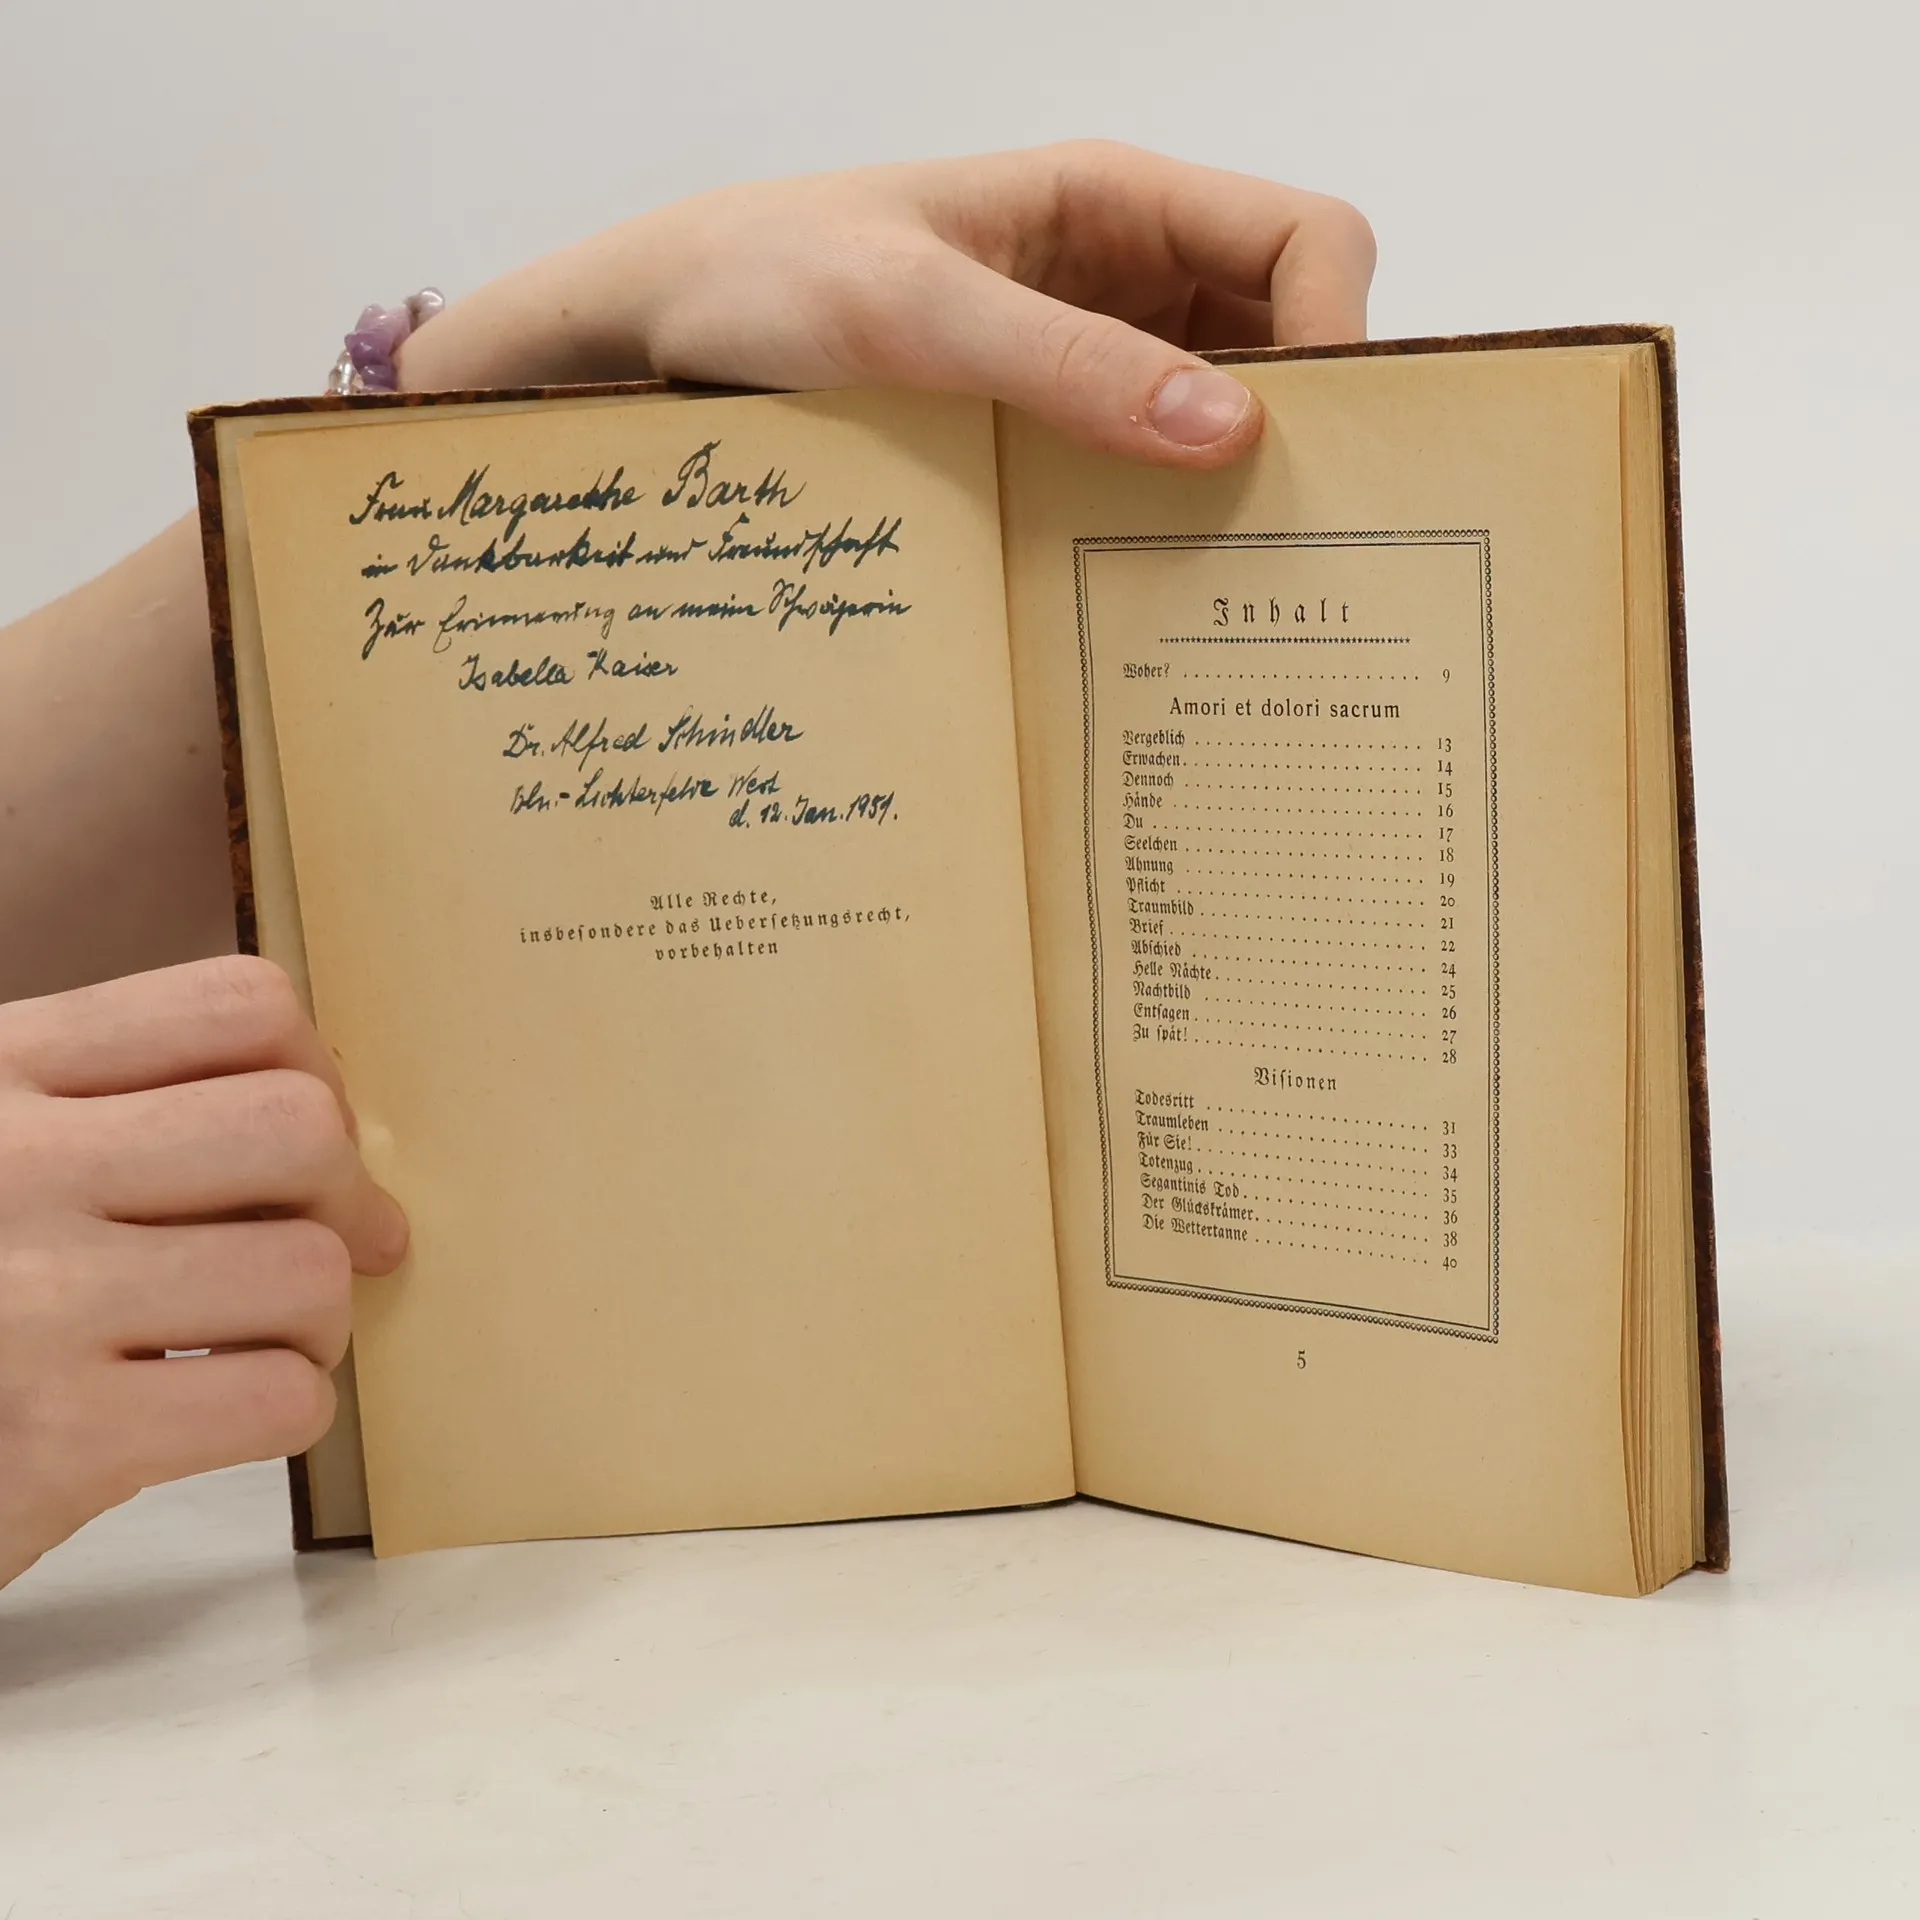 Frau Margarethe Barth
in Dankbarkeit und Freundschaft
Zur Erinnerung an meine Schwägerin
Isabella Kaiser
Dr. Alfred Schindler
Bln.- Lichterfelde West
d. 12. Jan. 1951.
Alle Rechte,
insbesondere das Uebersetzungsrecht,
vorbehalten
Inhalt
Woher? . . . . . . . . . . . . . . . . . . . . 9
Amori et dolori sacrum
Vergeblich . . . . . . . . . . . . . . . . . . . . 13
Erwachen . . . . . . . . . . . . . . . . . . . . 14
Dennoch . . . . . . . . . . . . . . . . . . . . 15
Hände . . . . . . . . . . . . . . . . . . . . 16
Du . . . . . . . . . . . . . . . . . . . . 17
Seelchen . . . . . . . . . . . . . . . . . . . . 18
Ahnung . . . . . . . . . . . . . . . . . . . . 19
Pflicht . . . . . . . . . . . . . . . . . . . . 20
Traumbild . . . . . . . . . . . . . . . . . . . . 21
Brief . . . . . . . . . . . . . . . . . . . . 22
Abschied . . . . . . . . . . . . . . . . . . . . 24
Helle Nächte . . . . . . . . . . . . . . . . . . . . 25
Nachtbild . . . . . . . . . . . . . . . . . . . . 26
Entsagen . . . . . . . . . . . . . . . . . . . . 27
Zu spät! . . . . . . . . . . . . . . . . . . . . 28
Visionen
Todesritt . . . . . . . . . . . . . . . . . . . . 31
Traumleben . . . . . . . . . . . . . . . . . . . . 33
Für Sie! . . . . . . . . . . . . . . . . . . . . 34
Totenzug . . . . . . . . . . . . . . . . . . . . 35
Segantinis Tod . . . . . . . . . . . . . . . . . . . . 36
Der Glückskrämer . . . . . . . . . . . . . . . . . . . . 38
Die Wettertanne . . . . . . . . . . . . . . . . . . . . 40
5